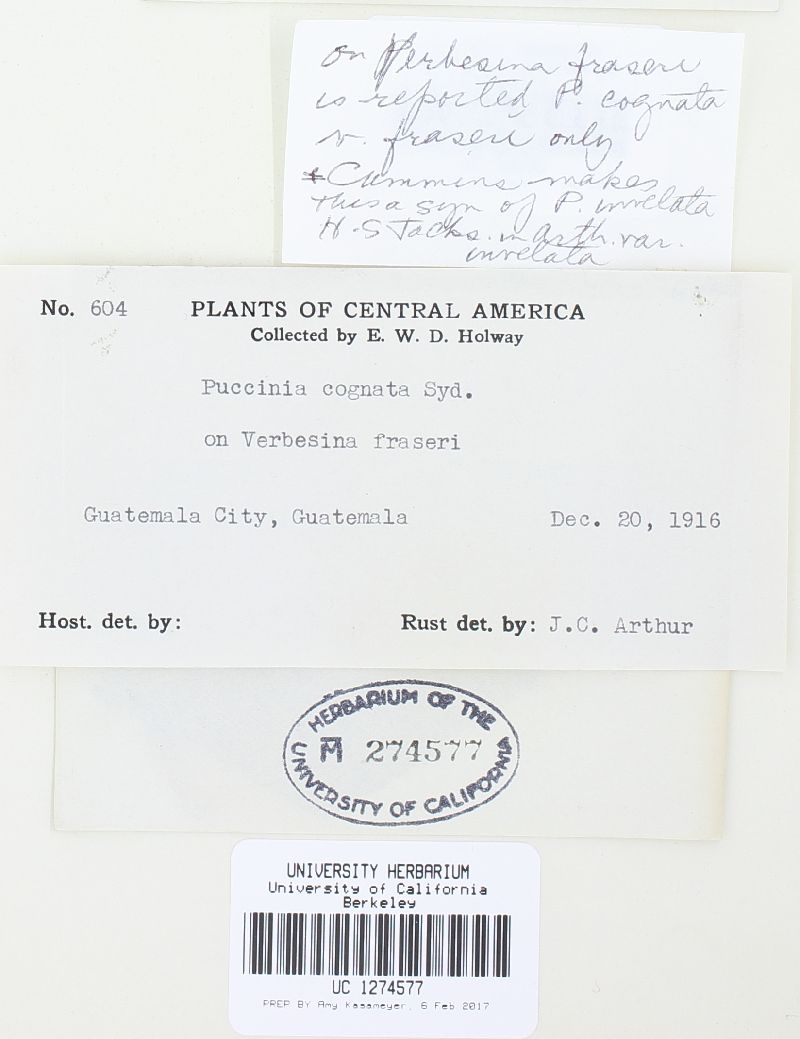 on Verbesina fraseri
is reported P. cognata
v. fraseri only
*Cummins makes
this a syn of P. invelata
H-S Jacks. in Arth. var.
invelata
No. 604 PLANTS OF CENTRAL AMERICA
Collected by E. W. D. Holway
Puccinia cognata Syd.
on Verbesina fraseri
Guatemala City, Guatemala Dec. 20, 1916
Host. det. by: Rust det. by: J.C. Arthur
HERBARIUM OF THE
M 274577
UNIVERSITY OF CALIFORNIA
UNIVERSITY HERBARIUM
University of California
Berkeley
UC 1274577
PREP BY Amy Kasameyer, 6 Feb 2017